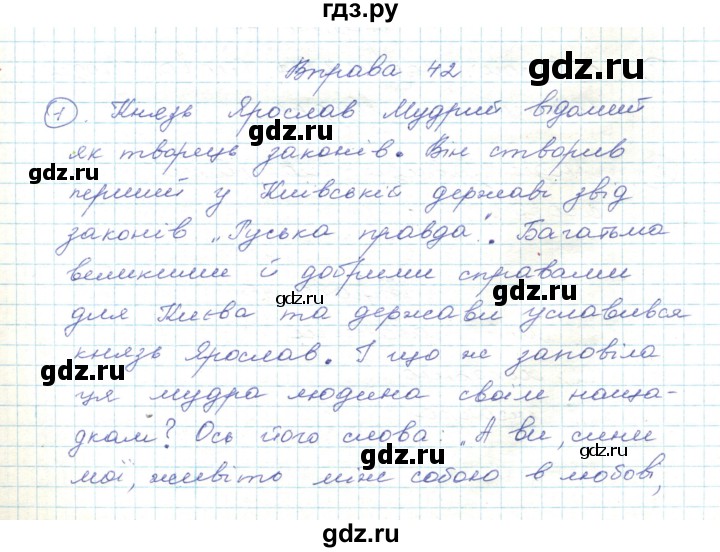 гдз.ру
Вправа 42
1. Князь Ярослав Мудрий відомий
як творець законів. Він створив
перший у Київській державі звід
законів „Руська правда". Багатьма
великими й добрими справами
для Києва та держави уславився
князь Ярослав. І що ж заповіла
ця мудра людина своїм наща-
дкам? Ось його слова: „А ви, сини
мої, живіть між собою в любові,
gdz.ru
gdz.ru
gdz.ru
gdz.ru
gdz.ru
gdz.ru
gdz.ru
gdz.ru
gdz.ru
gdz.ru
gdz.ru
gdz.ru
gdz.ru
gdz.ru